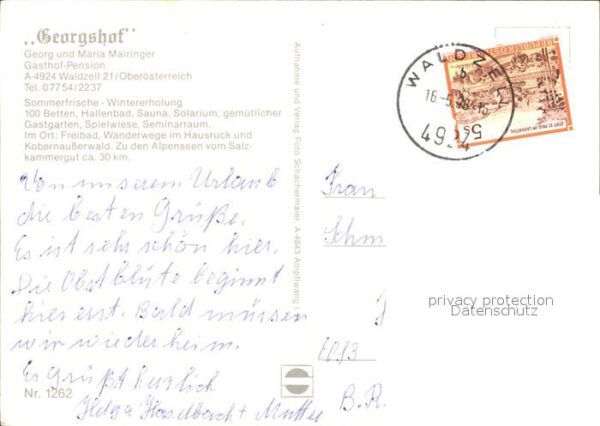 „Georgshof"
Georg und Maria Mairinger
Gasthof-Pension
A-4924 Waldzell 21/Oberösterreich
Tel. 07754/2237
Sommerfrische - Wintererholung
100 Betten, Hallenbad, Sauna, Solarium, gemütlicher
Gastgarten, Spielwiese, Seminarraum.
Im Ort: Freibad, Wanderwege im Hausruck und
Kobernaußerwald. Zu den Alpenseen vom Salz-
kammergut ca. 30 km.
Von unserem Urlaub
die besten Grüße.
Es ist sehr schön hier.
Die Obstblüte beginnt
hier erst. Bald müssen
wir wieder heim.
Es grüßt herzlich
Helga Haselbach + Mutter
Nr. 1262
Aufnahme und Verlag Foto Schachermaier, A-4843 Ampflwang i
WALDZELL
4924
REPUBLIK ÖSTERREICH
STIFT ST. PAUL IM LAVANTTAL
S 5
Frau
Schm
6093
B.R.
privacy protection
Datenschutz